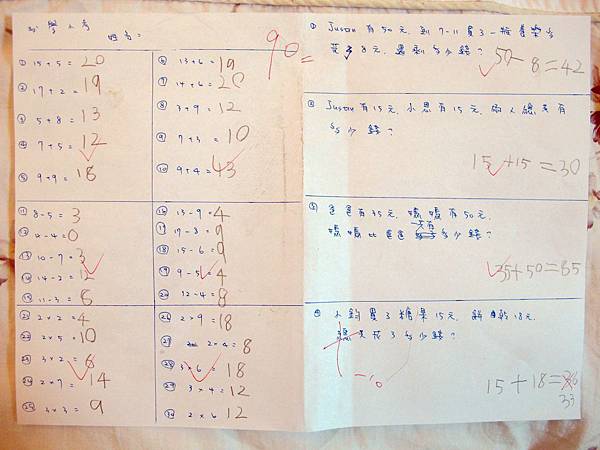 數學小考
姓名:
90
① 15+5=20
② 17+2=19
③ 5+8=13
④ 7+5=12
⑤ 9+9=18
⑥ 13+6=19
⑦ 14+6=20
⑧ 3+9=12
⑨ 7+3=10
⑩ 9+4=13
⑪ 8-5=3
⑫ 4-4=0
⑬ 10-7=3
⑭ 14-2=12
⑮ 11-3=8
⑯ 13-9=4
⑰ 17-8=9
⑱ 15-6=9
⑲ 9-5=4
⑳ 12-4=8
㉑ 2×2=4
㉒ 2×5=10
㉓ 3×2=6
㉔ 2×7=14
㉕ 3×3=9
㉖ 2×9=18
㉗ 2×4=8
㉘ 3×6=18
㉙ 3×4=12
㉚ 2×6=12
① Justin有50元,到7-11買了一瓶養樂多
花了8元,還剩多少錢?
50-8=42
② Justin有15元,小恩有15元,兩人總共有
多少錢?
15+15=30
③ 爸爸有35元,媽媽有50元,
媽媽比爸爸共有多少錢?
35+50=85
④ 小鈞買了糖果15元,餅乾18元,
總共花了多少錢?
-10
15+18=36
33